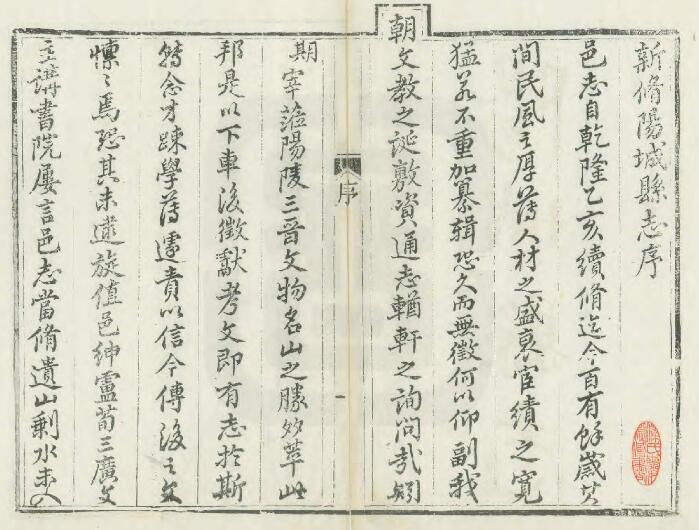 新脩陽城縣志序
邑志自乾隆乙亥續脩迄今百有餘歲其
間民風之厚薄人材之盛衰宦績之寬
猛若不重加纂輯恐久而無徵何以仰副我
朝文教之誕敷資通志輶軒之詢問哉矧
序
一
期宰蒞陽陵三晉文物名山之勝效萃此
邦是以下車後徵獻考文即有志於斯
轉念才疎學薄遽責以信今傳後之文
懍懍焉恐其未逮旋值邑紳盧荀三廣文
主講書院屢言邑志當脩遺山剩水未入